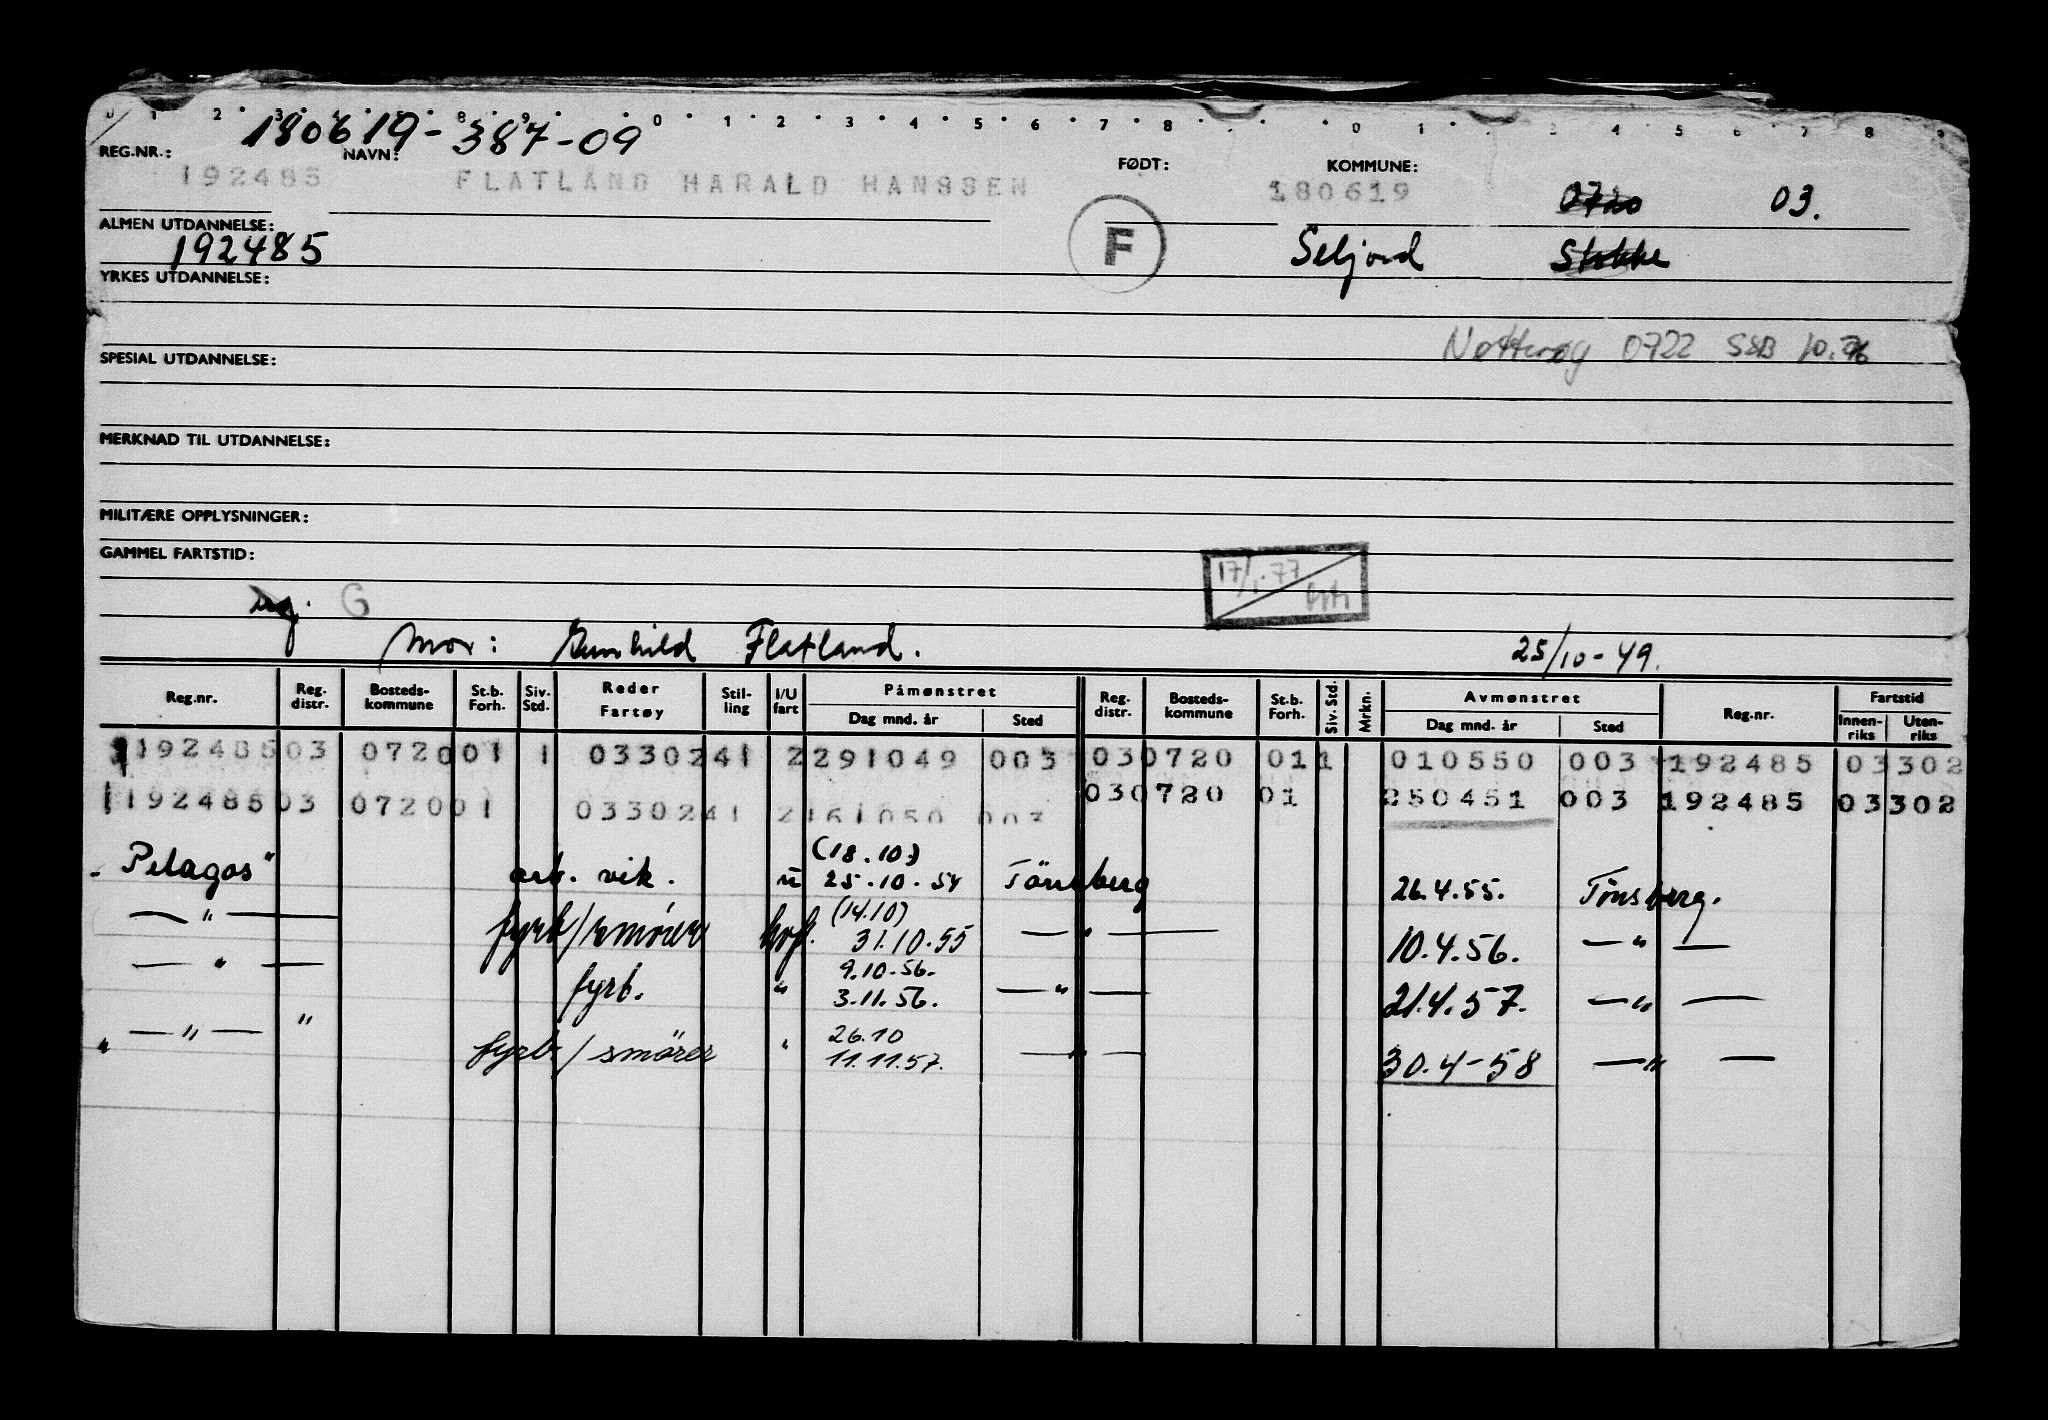 180619-387-09
REG.NR.: NAVN: FØDT: KOMMUNE:
192485 FLATLAND HARALD HANSSEN 180619 0720 03.
ALMEN UTDANNELSE:
192485 F Seljord Stokke
YRKES UTDANNELSE:
Nøtterøy 0722 SSB 10.76
SPESIAL UTDANNELSE:
MERKNAD TIL UTDANNELSE:
MILITÆRE OPPLYSNINGER:
GAMMEL FARTSTID:
17/1.77
G
Mor: Gunhild Flatland. 25/10-49.
Reg.nr. Reg. distr. Bosteds-kommune St.b. Forh. Siv. Std. Reder Fartøy Stil-ling I/U fart Påmønstret Dag mnd. år Sted Reg. distr. Bosteds-kommune St.b. Forh. Siv. Std. Mrkn. Avmønstret Dag mnd. år Sted Reg.nr. Fartstid Innen-riks Uten-riks
192485 03 0720 01 1 0330241 2 291049 003 03 0720 01 1 010550 003 192485 03 302
192485 03 0720 01 0330241 2 161050 003 03 0720 01 250451 003 192485 03 302
(18.10)
"Pelagos" arb. vik. u 25.10.54 Tönsberg 26.4.55. Tönsberg.
(14.10)
— " — fyrb/smører 31.10.55 — " — 10.4.56. — " —
9.10.56.
— " — fyrb. " 3.11.56. — " — 21.4.57. — " —
26.10
— " — " fyrb/smörer " 11.11.57. — " — 30.4-58 — " —